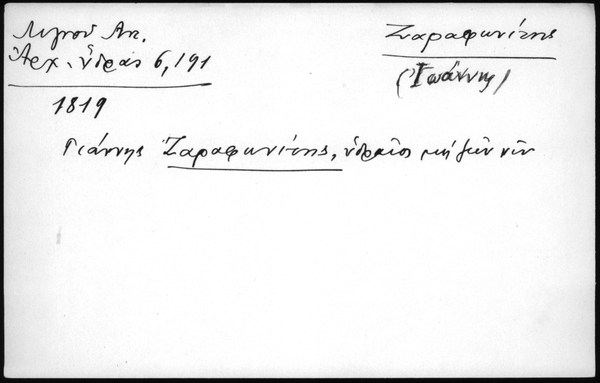 Λιγνού Αντ.
Ἀρχ. Ὕδρας 6, 191
Ζαραφωνίτης
(Ἰωάννης)
1819
Γιάννης Ζαραφωνίτης, ὑδραῖος μὴ ζῶν νῦν